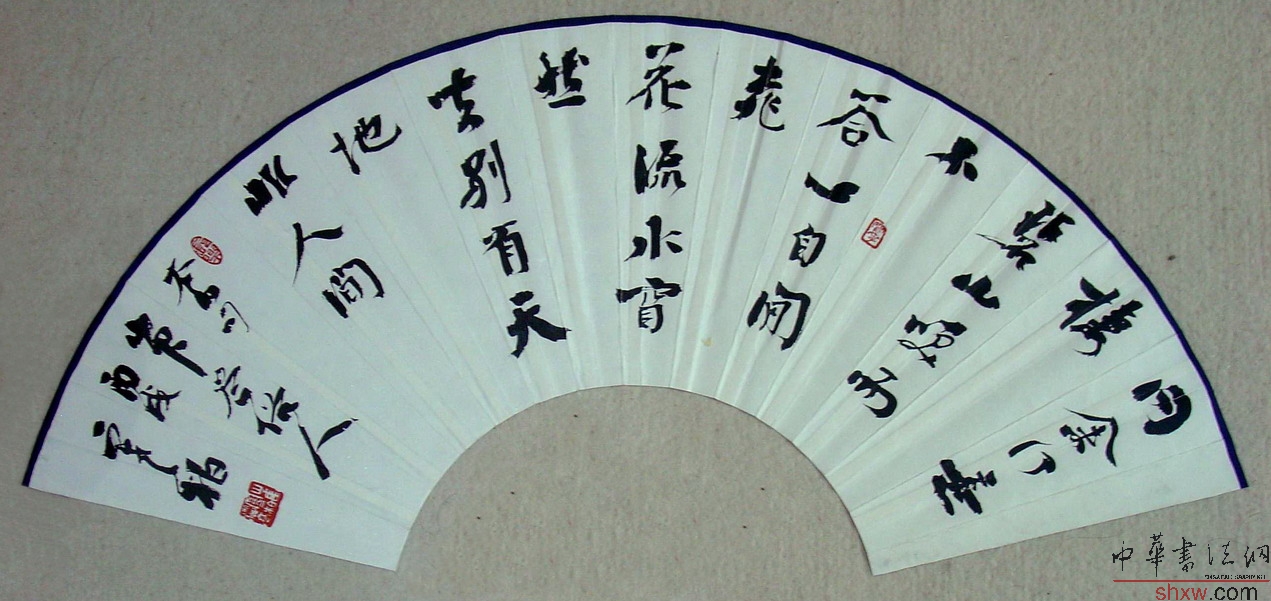 问余何意
棲
碧山笑而
不
答心自闲
桃
花流水窅
然
去别有天
地
非人间
丙戌
中華書法網
shxw.com